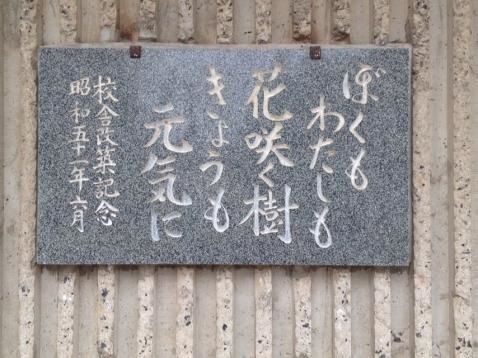 ぼくも
わたしも
花咲く樹
きょうも
元気に
校舎改築記念
昭和五十一年六月